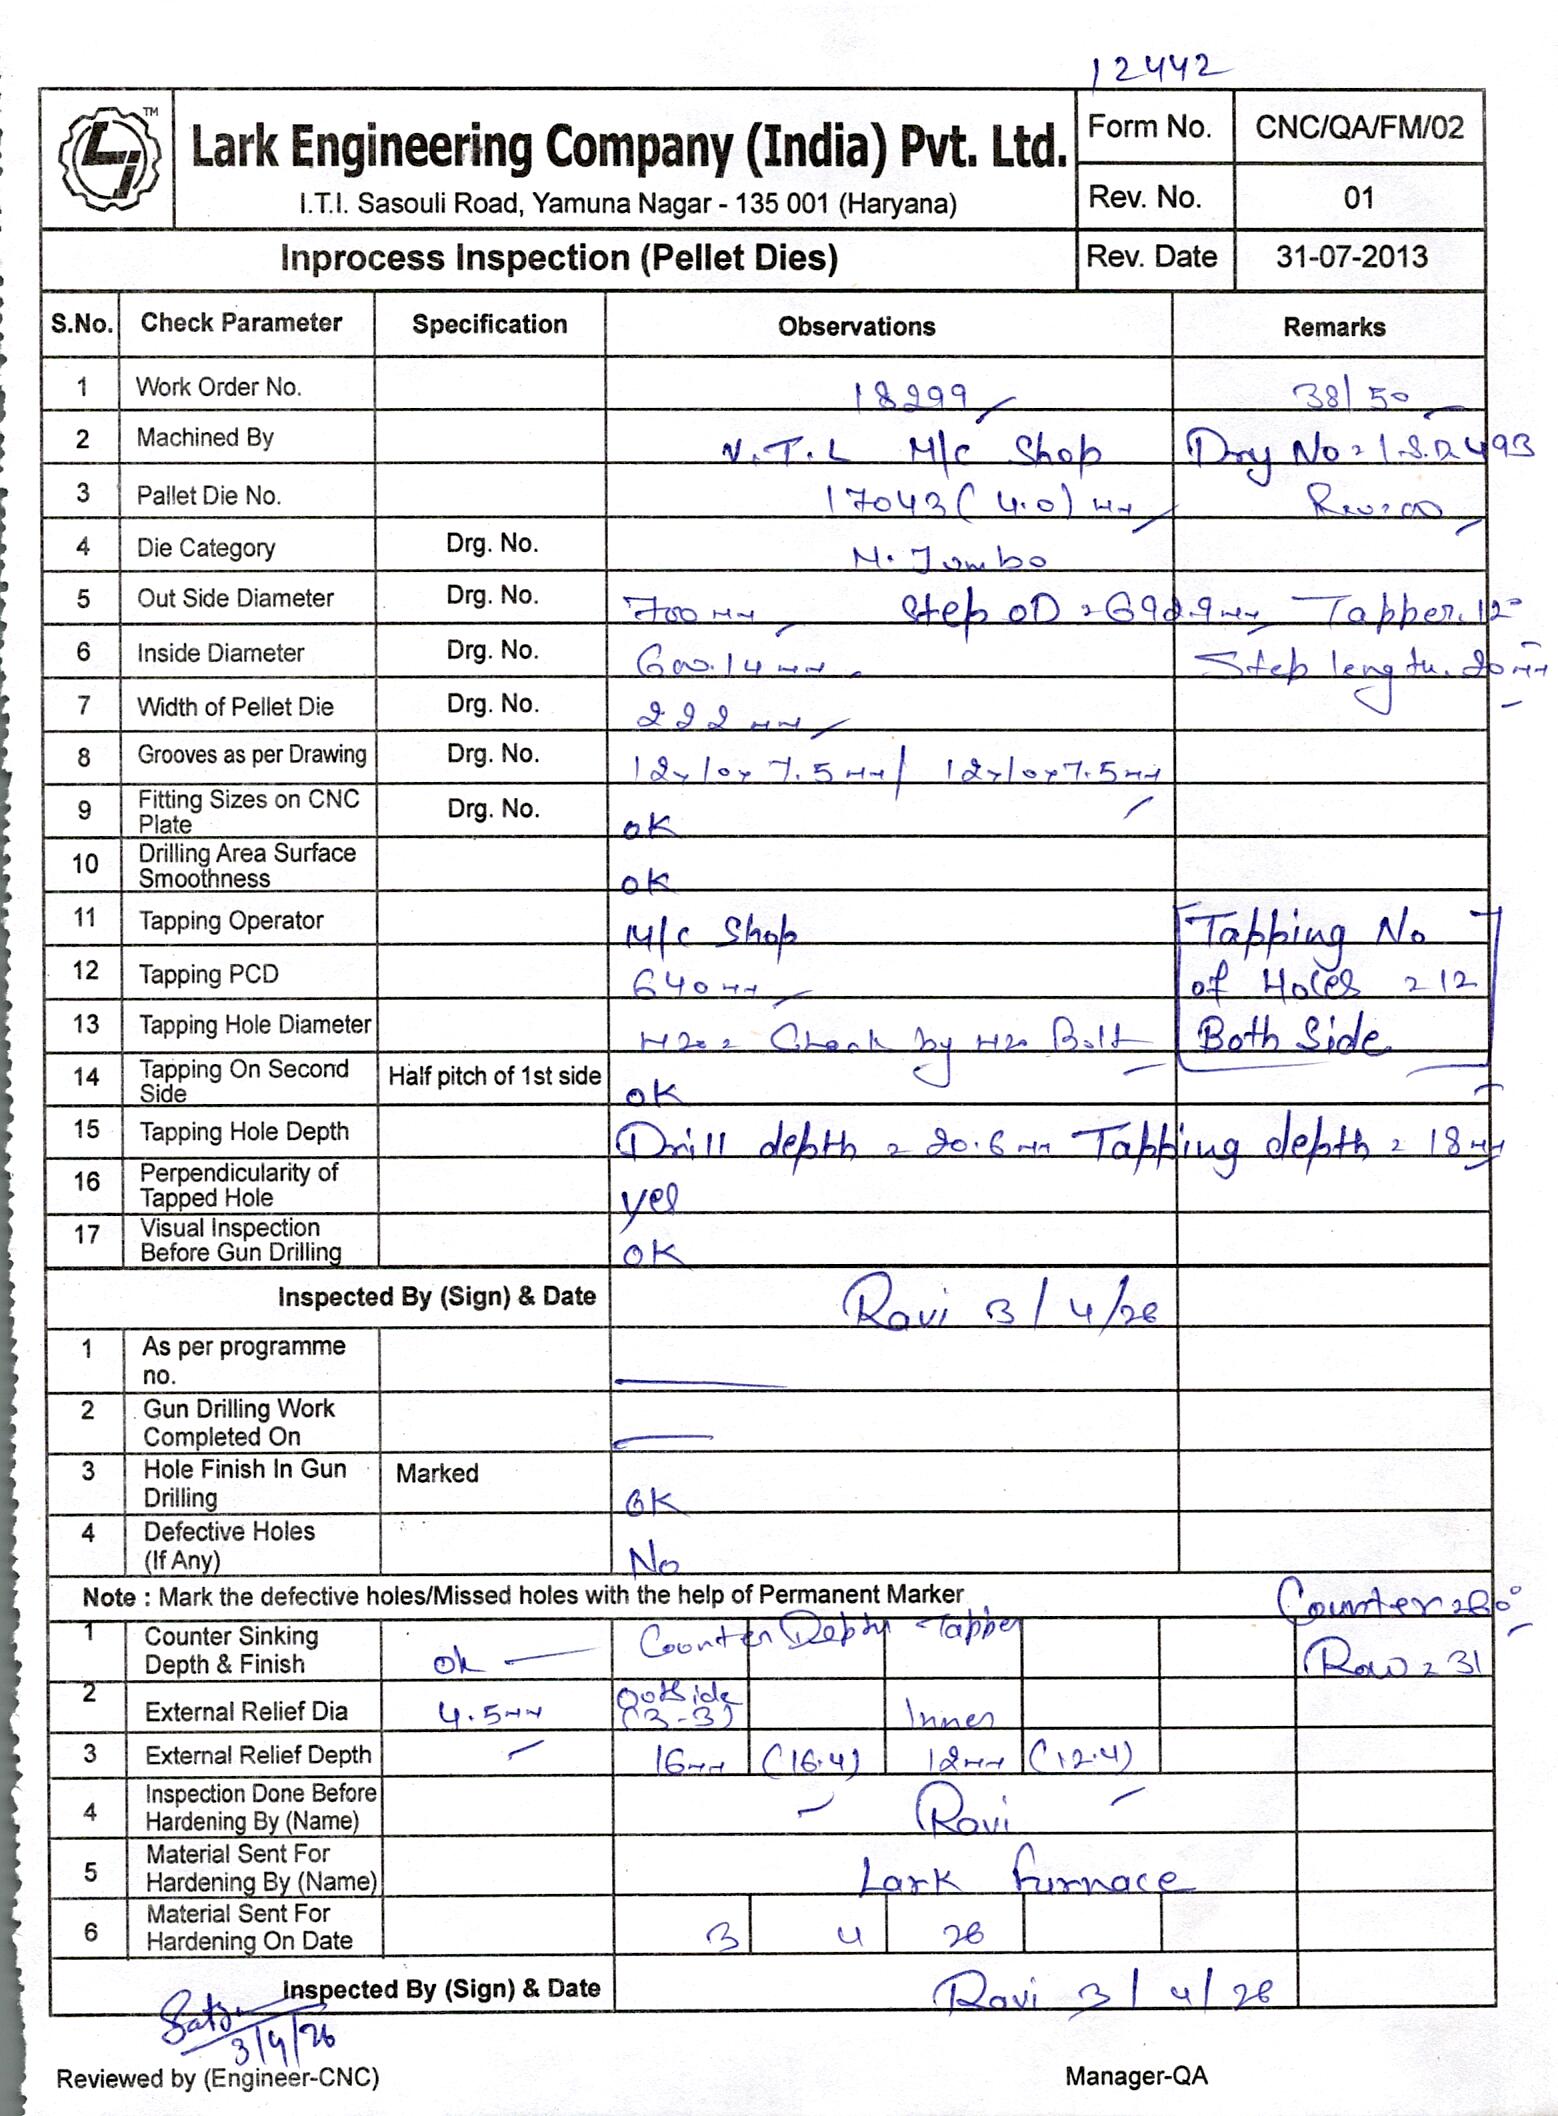 12442
TM
Lark Engineering Company (India) Pvt. Ltd.
I.T.I. Sasouli Road, Yamuna Nagar - 135 001 (Haryana)
Form No. CNC/QA/FM/02
Rev. No. 01
Inprocess Inspection (Pellet Dies) Rev. Date 31-07-2013
S.No. Check Parameter Specification Observations Remarks
1 Work Order No. 18299 38/50
2 Machined By V.T.L M/c Shop Drg No = 1.S.D 493
3 Pallet Die No. 17043 (4.0) mm Rev=00
4 Die Category Drg. No. M. Jumbo
5 Out Side Diameter Drg. No. 700 mm Step OD = 692.9mm Tapper. 12°
6 Inside Diameter Drg. No. 600.14mm Step length. 20mm
7 Width of Pellet Die Drg. No. 222mm
8 Grooves as per Drawing Drg. No. 12x10x7.5mm / 12x10x7.5mm
9 Fitting Sizes on CNC Plate Drg. No. OK
10 Drilling Area Surface Smoothness OK
11 Tapping Operator M/c Shop Tapping No
12 Tapping PCD 640mm of Holes = 12
13 Tapping Hole Diameter M20 = Check by M20 Bolt Both Side
14 Tapping On Second Side Half pitch of 1st side OK
15 Tapping Hole Depth Drill depth = 20.6mm Tapping depth = 18mm
16 Perpendicularity of Tapped Hole yes
17 Visual Inspection Before Gun Drilling OK
Inspected By (Sign) & Date Ravi 3/4/26
1 As per programme no.
2 Gun Drilling Work Completed On
3 Hole Finish In Gun Drilling Marked OK
4 Defective Holes (If Any) No
Note : Mark the defective holes/Missed holes with the help of Permanent Marker Counter = 60°
1 Counter Sinking Depth & Finish ok Counter Depth Tapper Row = 31
2 External Relief Dia 4.5mm Outside (3-3) Inner
3 External Relief Depth 16mm (16.4) 12mm (12.4)
4 Inspection Done Before Hardening By (Name) Ravi
5 Material Sent For Hardening By (Name) Lark Furnace
6 Material Sent For Hardening On Date 3 4 26
Inspected By (Sign) & Date Ravi 3/4/26
3/4/26
Reviewed by (Engineer-CNC) Manager-QA